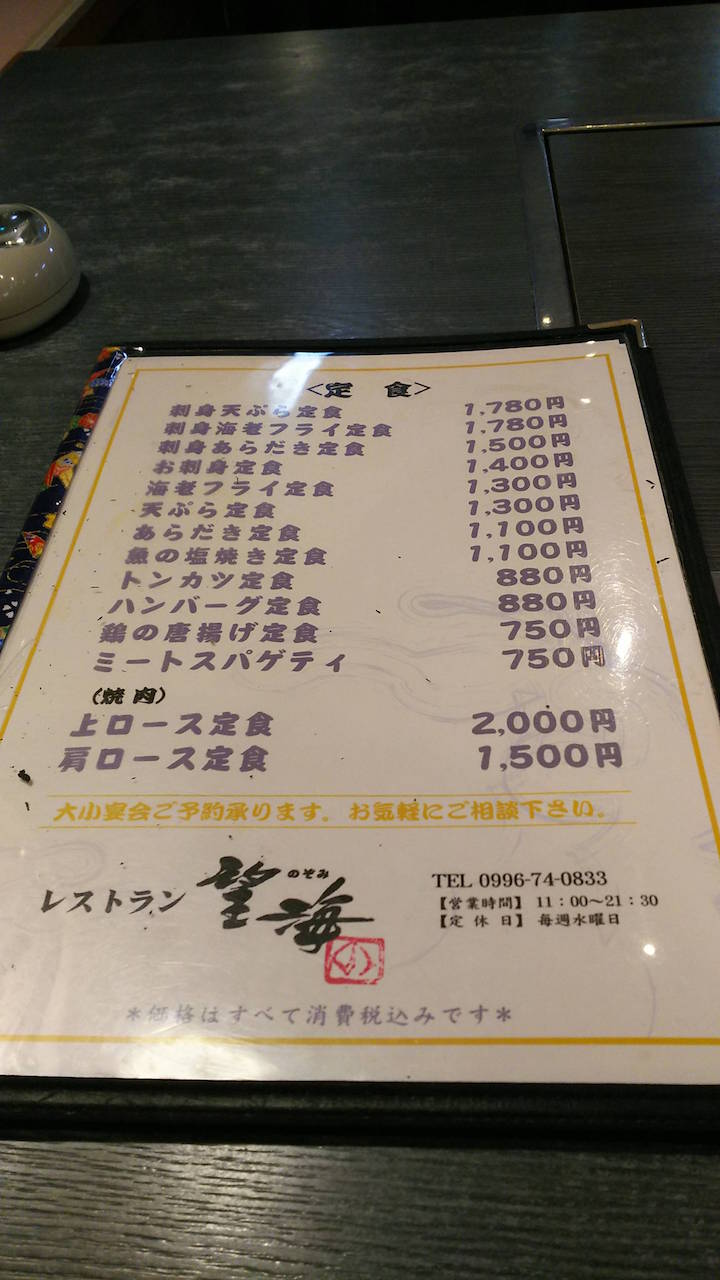 <定 食>
刺身天ぷら定食 1,780円
刺身海老フライ定食 1,780円
刺身あらだき定食 1,500円
お刺身定食 1,400円
海老フライ定食 1,300円
天ぷら定食 1,300円
あらだき定食 1,100円
魚の塩焼き定食 1,100円
トンカツ定食 880円
ハンバーグ定食 880円
鶏の唐揚げ定食 750円
ミートスパゲティ 750円
(焼肉)
上ロース定食 2,000円
肩ロース定食 1,500円
大小宴会ご予約承ります。お気軽にご相談下さい。
レストラン 望海
のぞみ
TEL 0996-74-0833
【営業時間】 11:00〜21:30
【定 休 日】 毎週水曜日
*価格はすべて消費税込みです*